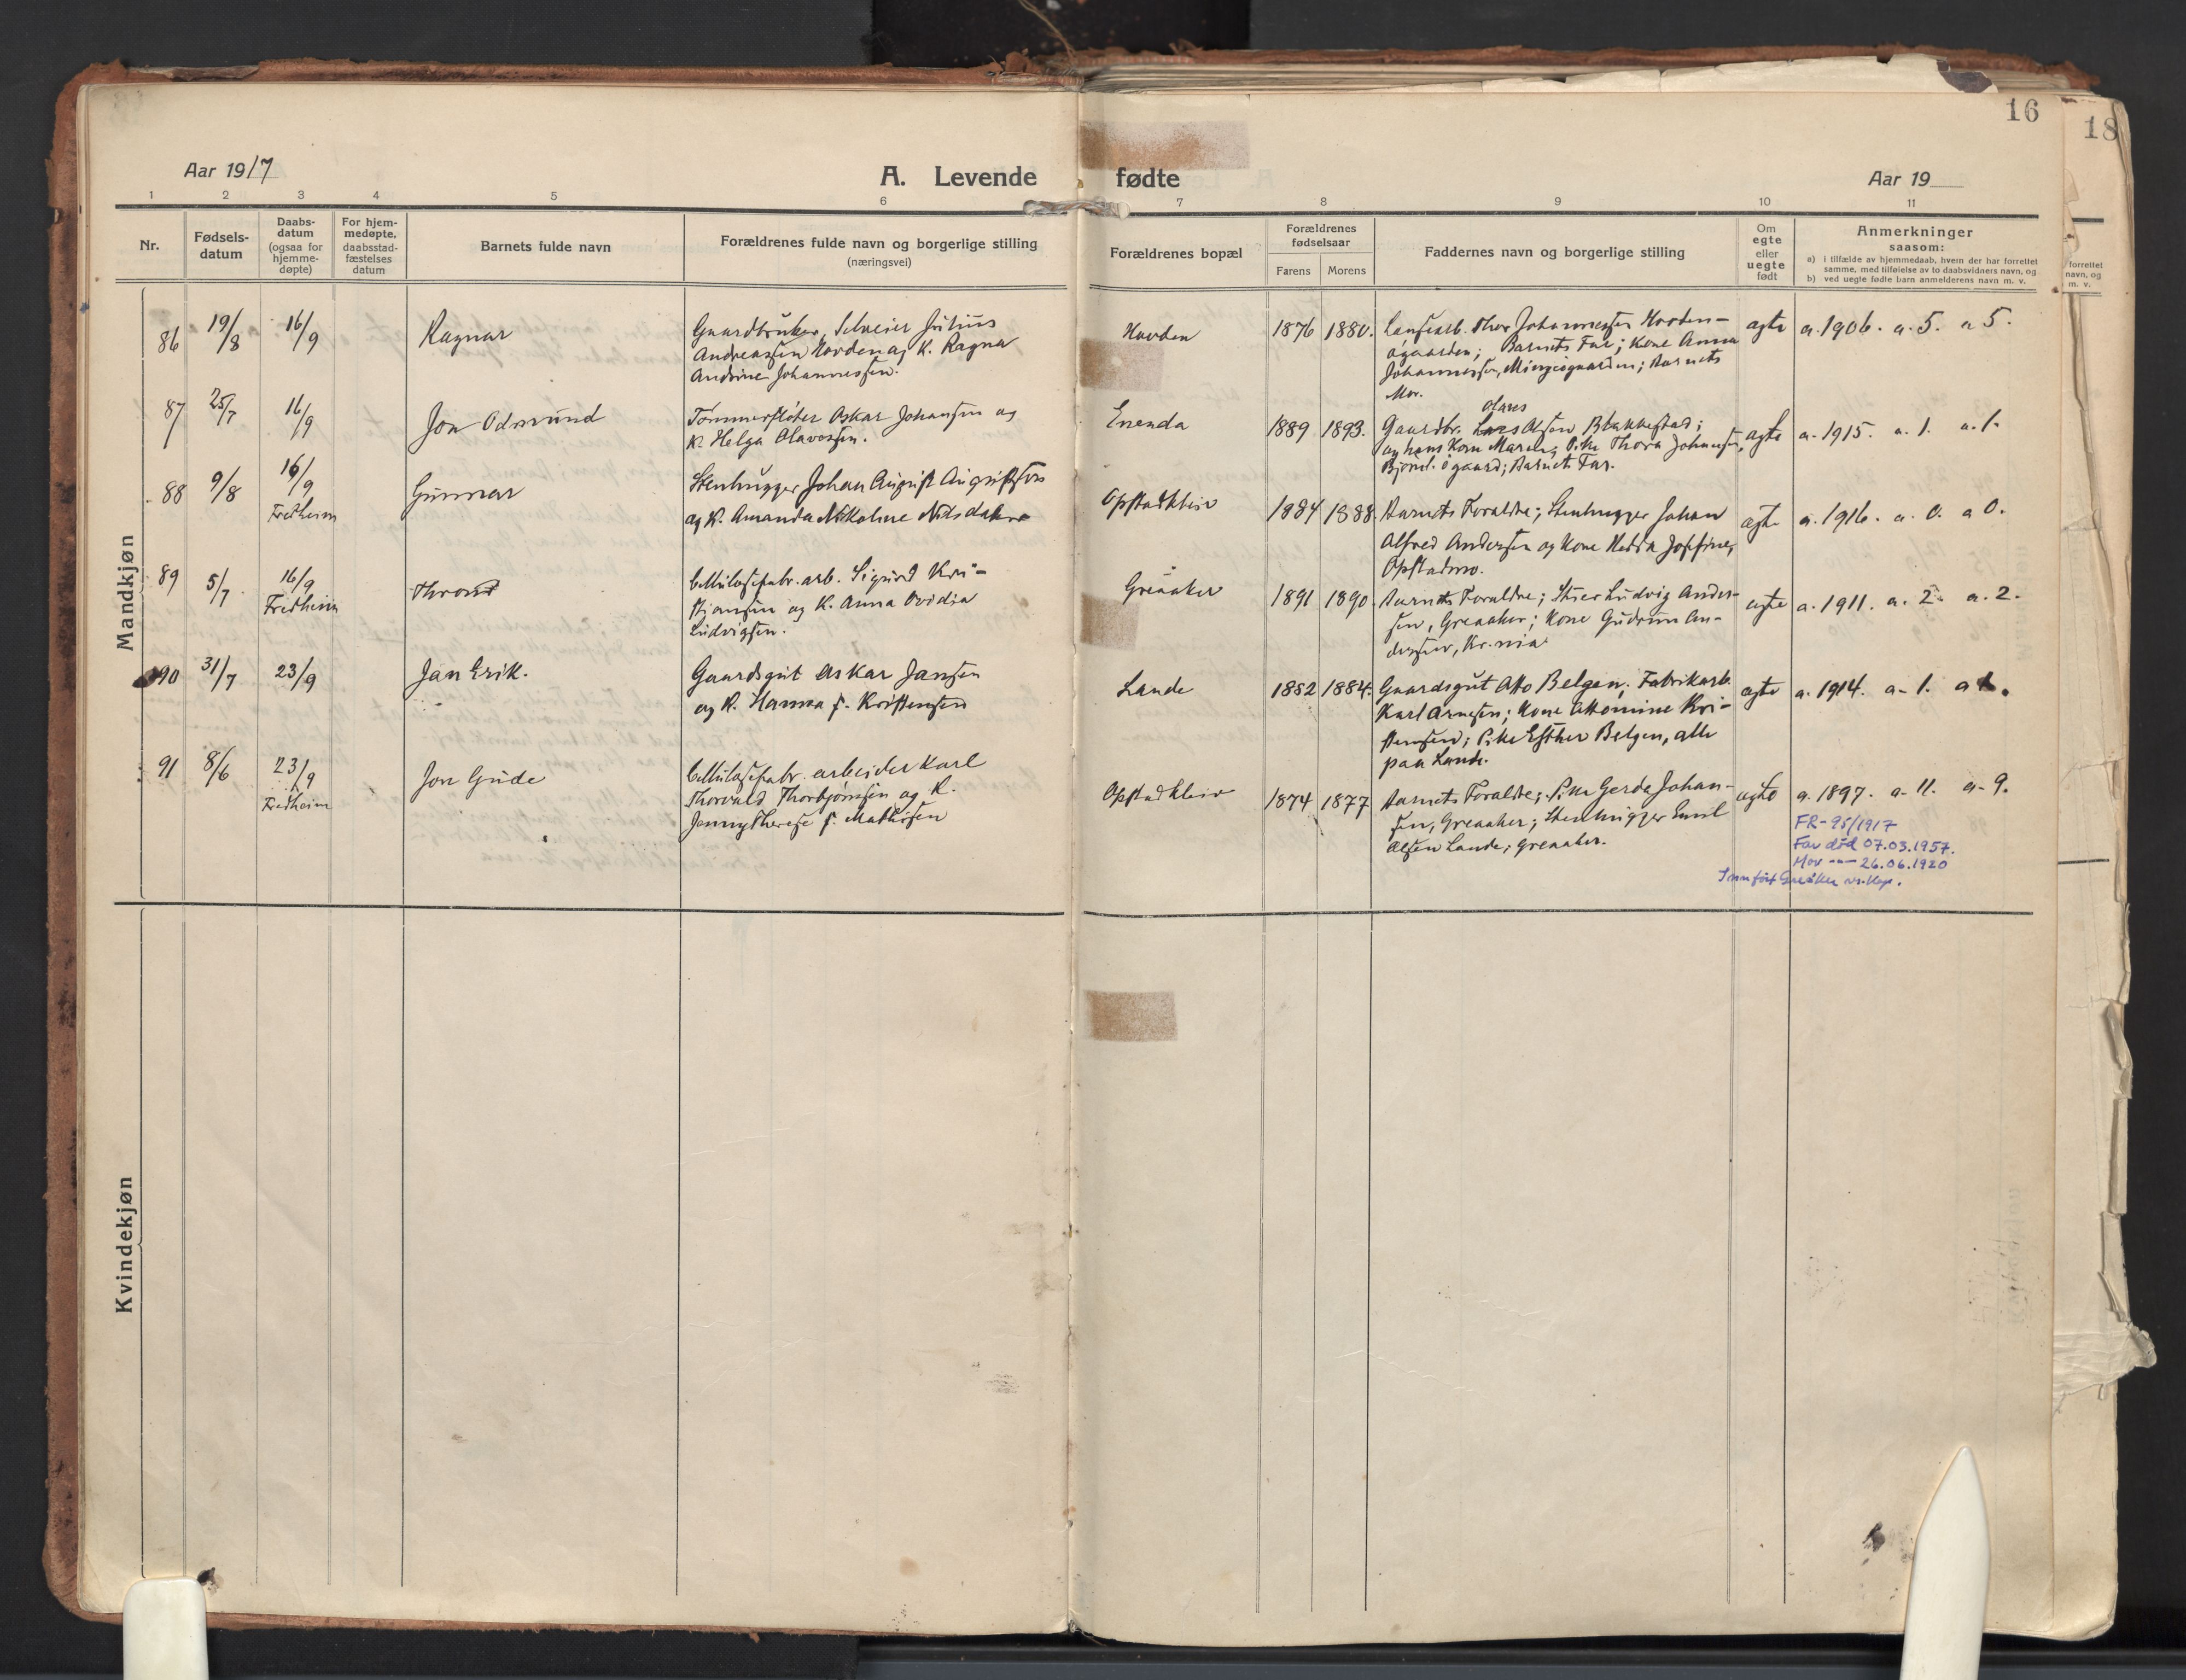 16
18
Aar 1917
A. Levende fødte
Aar 19
1 2 3 4 5 6 7 8 9 10 11
Nr.
Fødsels-
datum
Daabs-
datum
(ogsaa for
hjemme-
døpte)
For hjem-
medøpte,
daabsstad-
fæstelses
datum
Barnets fulde navn
Forældrenes fulde navn og borgerlige stilling
(næringsvei)
Forældrenes bopæl
Forældrenes
fødselsaar
Farens Morens
Faddernes navn og borgerlige stilling
Om
egte
eller
uegte
født
Anmerkninger
saasom:
a) i tilfælde av hjemmedaab, hvem der har forrettet
samme, med tilføielse av to daabsvidners navn, og
b) ved uegte fødte barn anmelderens navn m. v.
forrettet
navn, og
m. v.
Mandkjøn
86 19/8 16/9 Ragnar
Gaardbruker, Selveier Julius
Andreassen Hovden og K. Ragna
Andrine Johannessen.
Hovden 1876 1880.
Thor Johannessen Hovden-
øgaarden; Barnets Far; Kone Anna
Johannessen, Mingeøgaarden; Barnets
Mor.
egte a. 1906. a. 5. a 5.
87 25/7 16/9 Jon Odmund
Tømmerfløter Oskar Johansen og
K. Helga Olavessen.
Enenda 1889 1893.
Olaves
Gaardbr. Lars Olsen Blakkestad;
og hans Kone Maren; Pike Thora Johansen,
øgaard; Barnets Far.
egte a. 1915. a. 1. a. 1.
88 9/8 16/9 Gunnar
Fredheim
Stenhugger Johan August Augustson
og K. Amanda Nikoline Nilsdatter
Opstadkleiv 1884 1888.
Barnets Forældre; Stenhugger Johan
Alfred Andersen og Kone Hedda Josefine,
Opstadmo.
egte a. 1916. a. 0. a 0.
89 5/7 16/9 Thrond
Fredheim
Cellulosefabr. arb. Sigurd Kri-
stiansen og K. Anna Ovidia
Ludvigsen.
Greaaker 1891 1890.
Barnets Forældre; Stuer Ludvig Ander-
sen, Greaaker; Kone Gudrun An-
dersen, Kr.nia.
egte a. 1911. a. 2. a. 2.
90 31/7 23/9 Jan Erik.
Gaardsgut Oskar Jansen
og K. Hanna f. Kristensen
Lande 1882 1884.
Gaardsgut Otto Belgen; Fabrikarb.
Karl Arnesen; Kone Ottomine Kri-
stensen; Pike Esther Belgen, alle
paa Lande.
egte a. 1914. a. 1. a 1.
91 8/6 23/9 Jon Gude
Fredheim
Cellulosefabr. arbeider Karl
Thorvald Thorbjørnsen og K.
Jenny Therese f. Mathisen
Opstadkleiv 1874 1877
Barnets Forældre; Pike Gerda Johan-
sen, Greaaker; Stenhugger Emil
Olsen Lande, Greaaker.
egte a. 1897. a. 11. a. 9.
FR-95/1917
Far død 07.03.1957.
Mor -"- 26.06.1920
Innført Greåker
Kvindekjøn